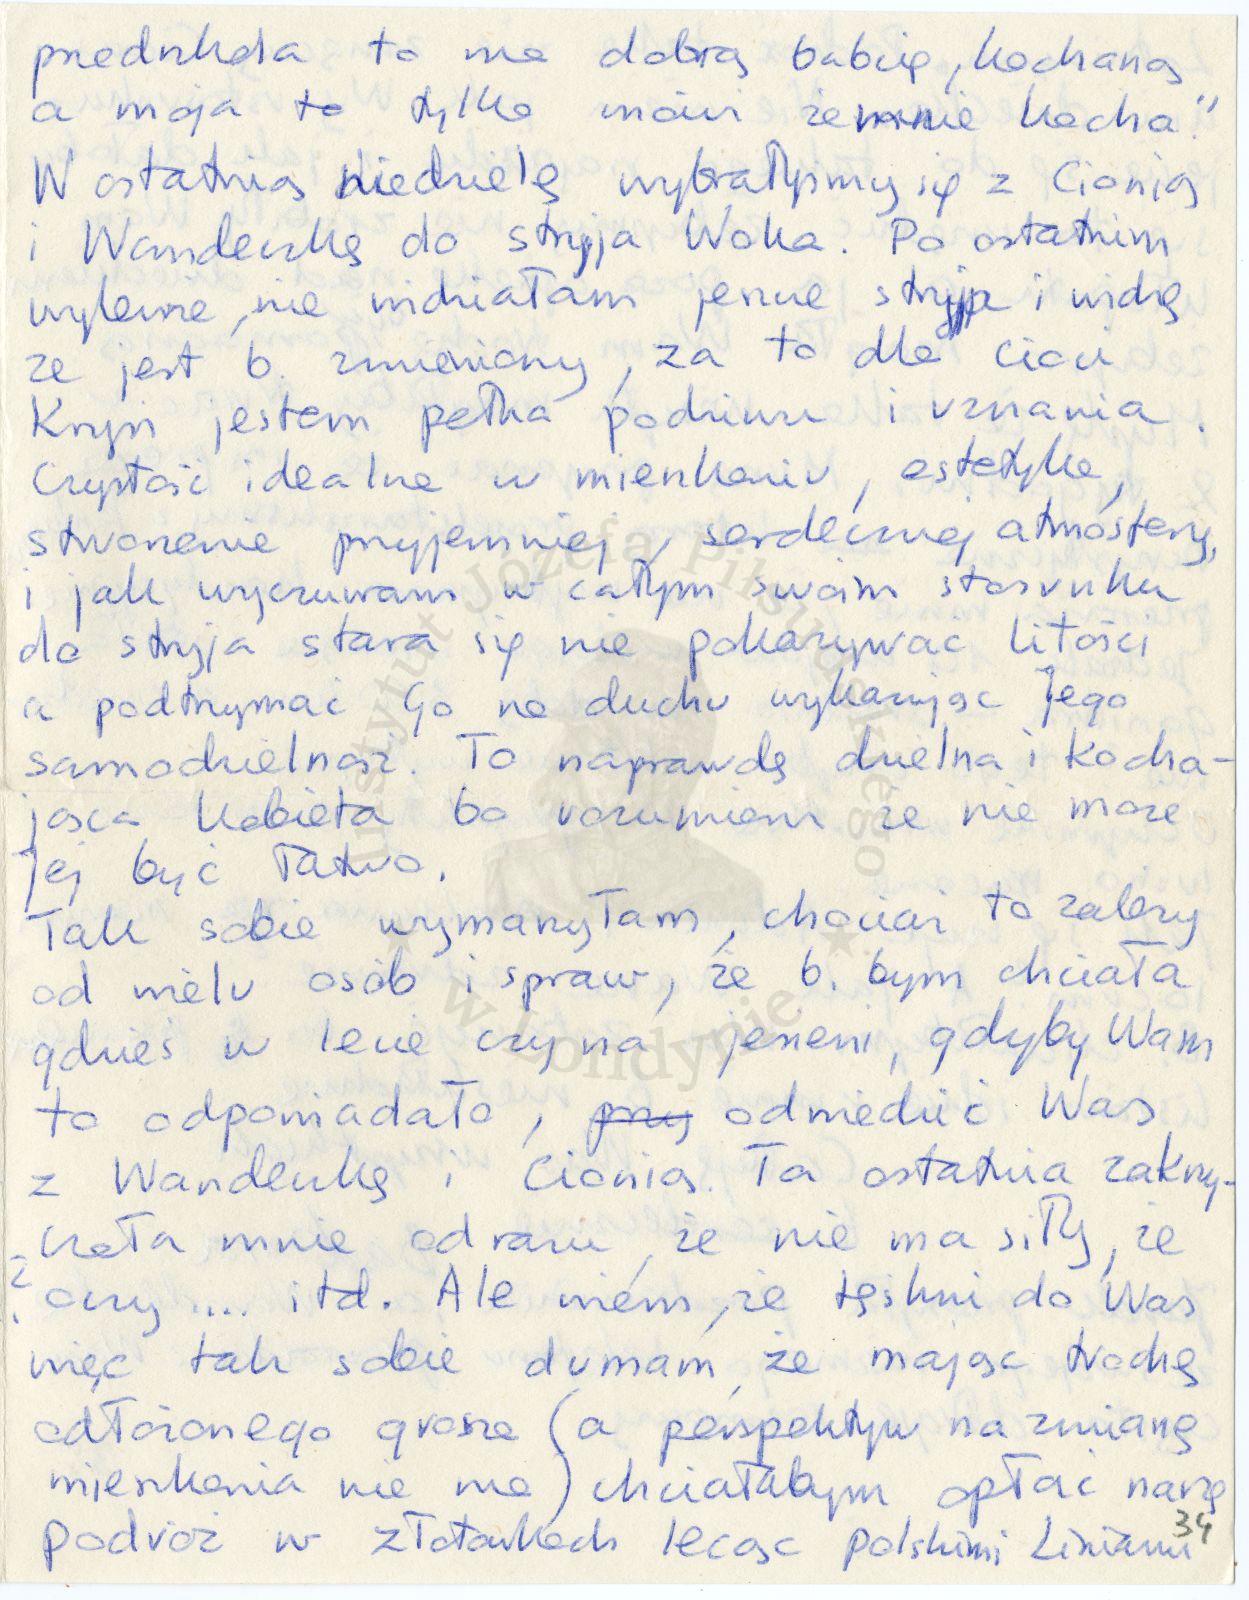 przedszkola to ma dobrą babcię, kochaną
a moja to tylko mówi że mnie kocha."
W ostatnią niedzielę wybrałyśmy się z Ciocią
i Wandeczką do stryja Woka. Po ostatnim
wylewie, nie widziałam jeszcze stryja i widzę
że jest b. zmieniony, za to dla cioci
Krysi jestem pełna podziwu i uznania.
Czystość idealna w mieszkaniu, estetyka,
stworzenie przyjemnej, serdecznej atmosfery,
i jak wyczuwam w całym swoim stosunku
do stryja stara się nie pokazywać litości
a podtrzymać Go na duchu wykazując Jego
samodzielność. To naprawdę dzielna i kocha-
jąca kobieta bo rozumiem że nie może
Jej być łatwo.
Tak sobie wymarzyłam, chociaż to zależy
od wielu osób i spraw, że b. bym chciała
gdzieś w lecie czy na jesieni, gdyby Wam
to odpowiadało, odwiedzić Was
z Wandeczką i Ciocią. Ta ostatnia zakrzy-
czała mnie od razu, że nie ma siły, że
oczy .... itd. Ale wiem, że tęskni do Was
więc tak sobie dumam, że mając trochę
odłożonego grosza (a perspektyw na zmianę
mieszkania nie ma) chciałabym opłać naszą
podróż w złotówkach lecąc polskimi Liniami
34
Instytut Józefa Piłsudskiego
w Londynie